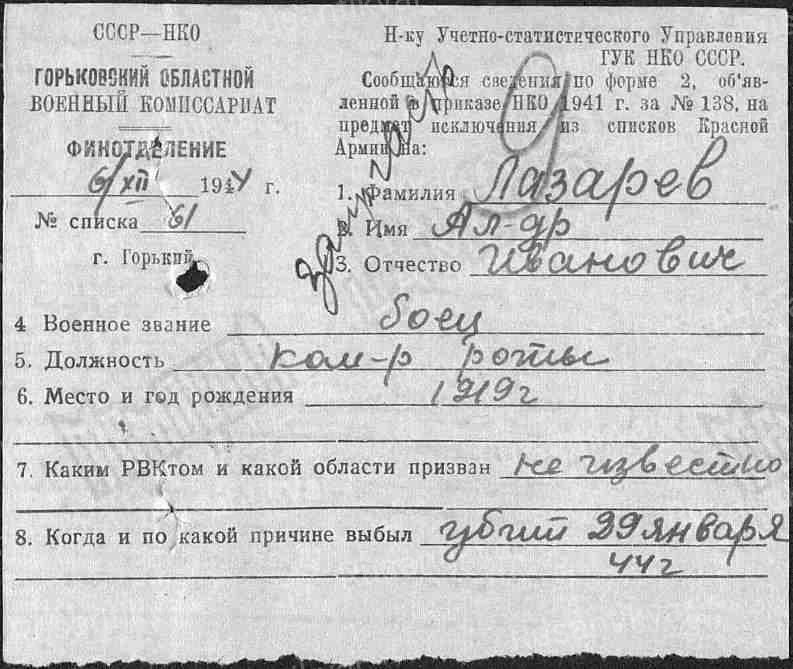 СССР—НКО
ГОРЬКОВСКИЙ ОБЛАСТНОЙ
ВОЕННЫЙ КОМИССАРИАТ
ФИНОТДЕЛЕНИЕ
6/XII 1944 г.
№ списка 61
г. Горький
Н-ку Учетно-статистического Управления
ГУК НКО СССР.
Сообщаются сведения по форме 2, об'яв-
ленной в приказе НКО 1941 г. за № 138, на
предмет исключения из списков Красной
Армии на:
1. Фамилия Лазарев
2. Имя Ал-др
3. Отчество Иванович
4 Военное звание боец
5. Должность ком-р роты
6. Место и год рождения 1919г
7. Каким РВКтом и какой области призван не известно
8. Когда и по какой причине выбыл убит 29 января
44г